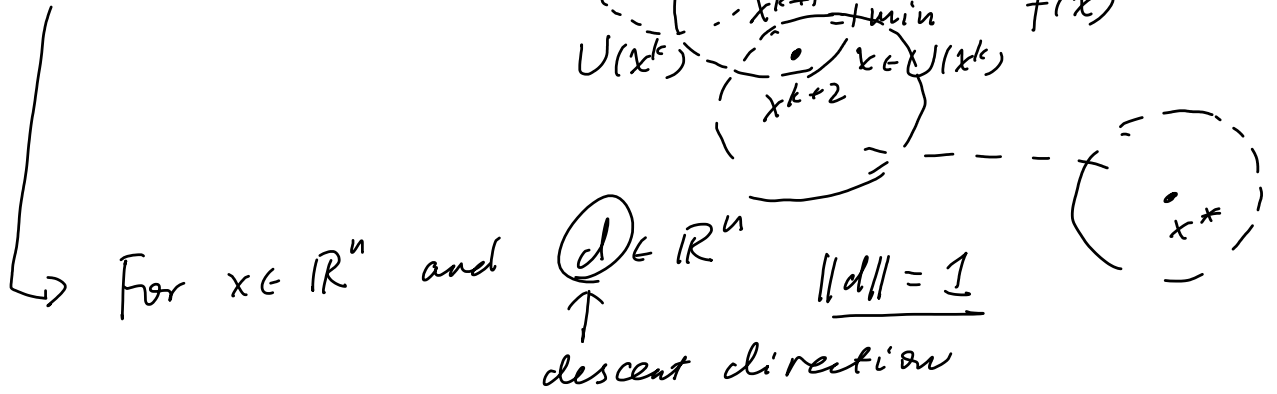 x^{k+1} = min f(x)
U(x^k) x ∈ U(x^k)
x^{k+2}
x*
For x ∈ ℝ^n and d ∈ ℝ^n ‖d‖ = 1
↑
descent direction